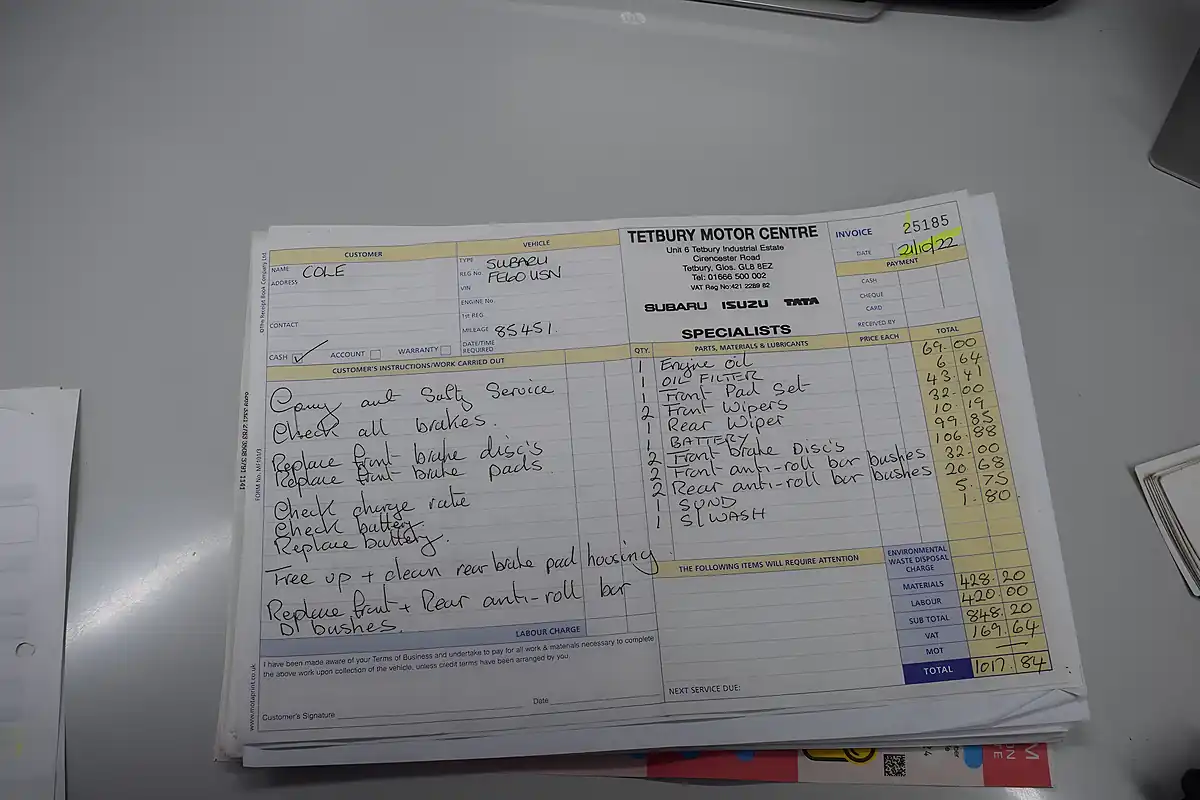 CUSTOMER
NAME COLE
ADDRESS
CONTACT
CASH ✓ ACCOUNT WARRANTY
VEHICLE
TYPE SUBARU
REG No. FE60 USN
VIN
ENGINE No.
1st REG.
MILEAGE 85451.
DATE/TIME
REQUIRED
TETBURY MOTOR CENTRE
Unit 6 Tetbury Industrial Estate
Cirencester Road
Tetbury, Glos. GL8 8EZ
Tel: 01666 500 002
VAT Reg No:421 2289 82
SUBARU ISUZU TATA
SPECIALISTS
INVOICE 25185
DATE 21/10/22
PAYMENT
CASH
CHEQUE
CARD
RECEIVED BY
CUSTOMER'S INSTRUCTIONS/WORK CARRIED OUT
Carry out Safty Service
Check all brakes.
Replace front brake disc's
Replace front brake pads.
Check charge rate
Check battery
Replace battery.
Free up + clean rear brake pad housing
Replace front + Rear anti-roll bar
D' bushes.
LABOUR CHARGE
I have been made aware of your Terms of Business and undertake to pay for all work & materials necessary to complete
the above work upon collection of the vehicle, unless credit terms have been arranged by you.
Date
Customer's Signature
QTY. PARTS, MATERIALS & LUBRICANTS PRICE EACH TOTAL
1 Engine Oil 69.00
1 OIL FILTER 6 64
1 Front Pad Set 43.41
2 Front Wipers 32.00
1 Rear Wiper 10 19
1 BATTERY 99.85
2 Front brake Disc's 106.88
2 Front anti-roll bar bushes 32.00
2 Rear anti-roll bar bushes 20 68
1 SUND 5.75
1 S/WASH 1.80
THE FOLLOWING ITEMS WILL REQUIRE ATTENTION
NEXT SERVICE DUE:
ENVIRONMENTAL
WASTE DISPOSAL
CHARGE
MATERIALS 428.20
LABOUR 420.00
SUB TOTAL 848.20
VAT 169.64
MOT —
TOTAL 1017.84
©the Receipt Book Company Ltd.
FORM No. MF401/3
www.motaprint.co.uk